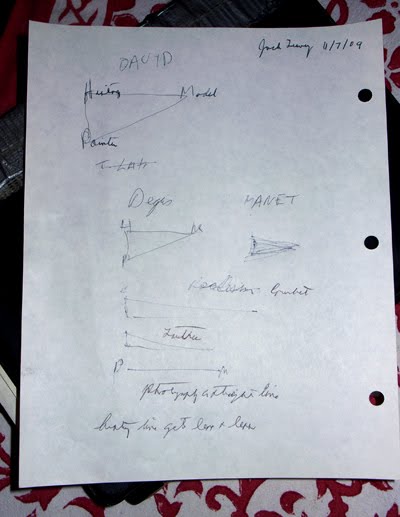 Jack 11/7/09
DAVID
History Model
Painter
Degas MANET
H M
P
Realism Courbet
P M
photography straight line
history line gets less + less